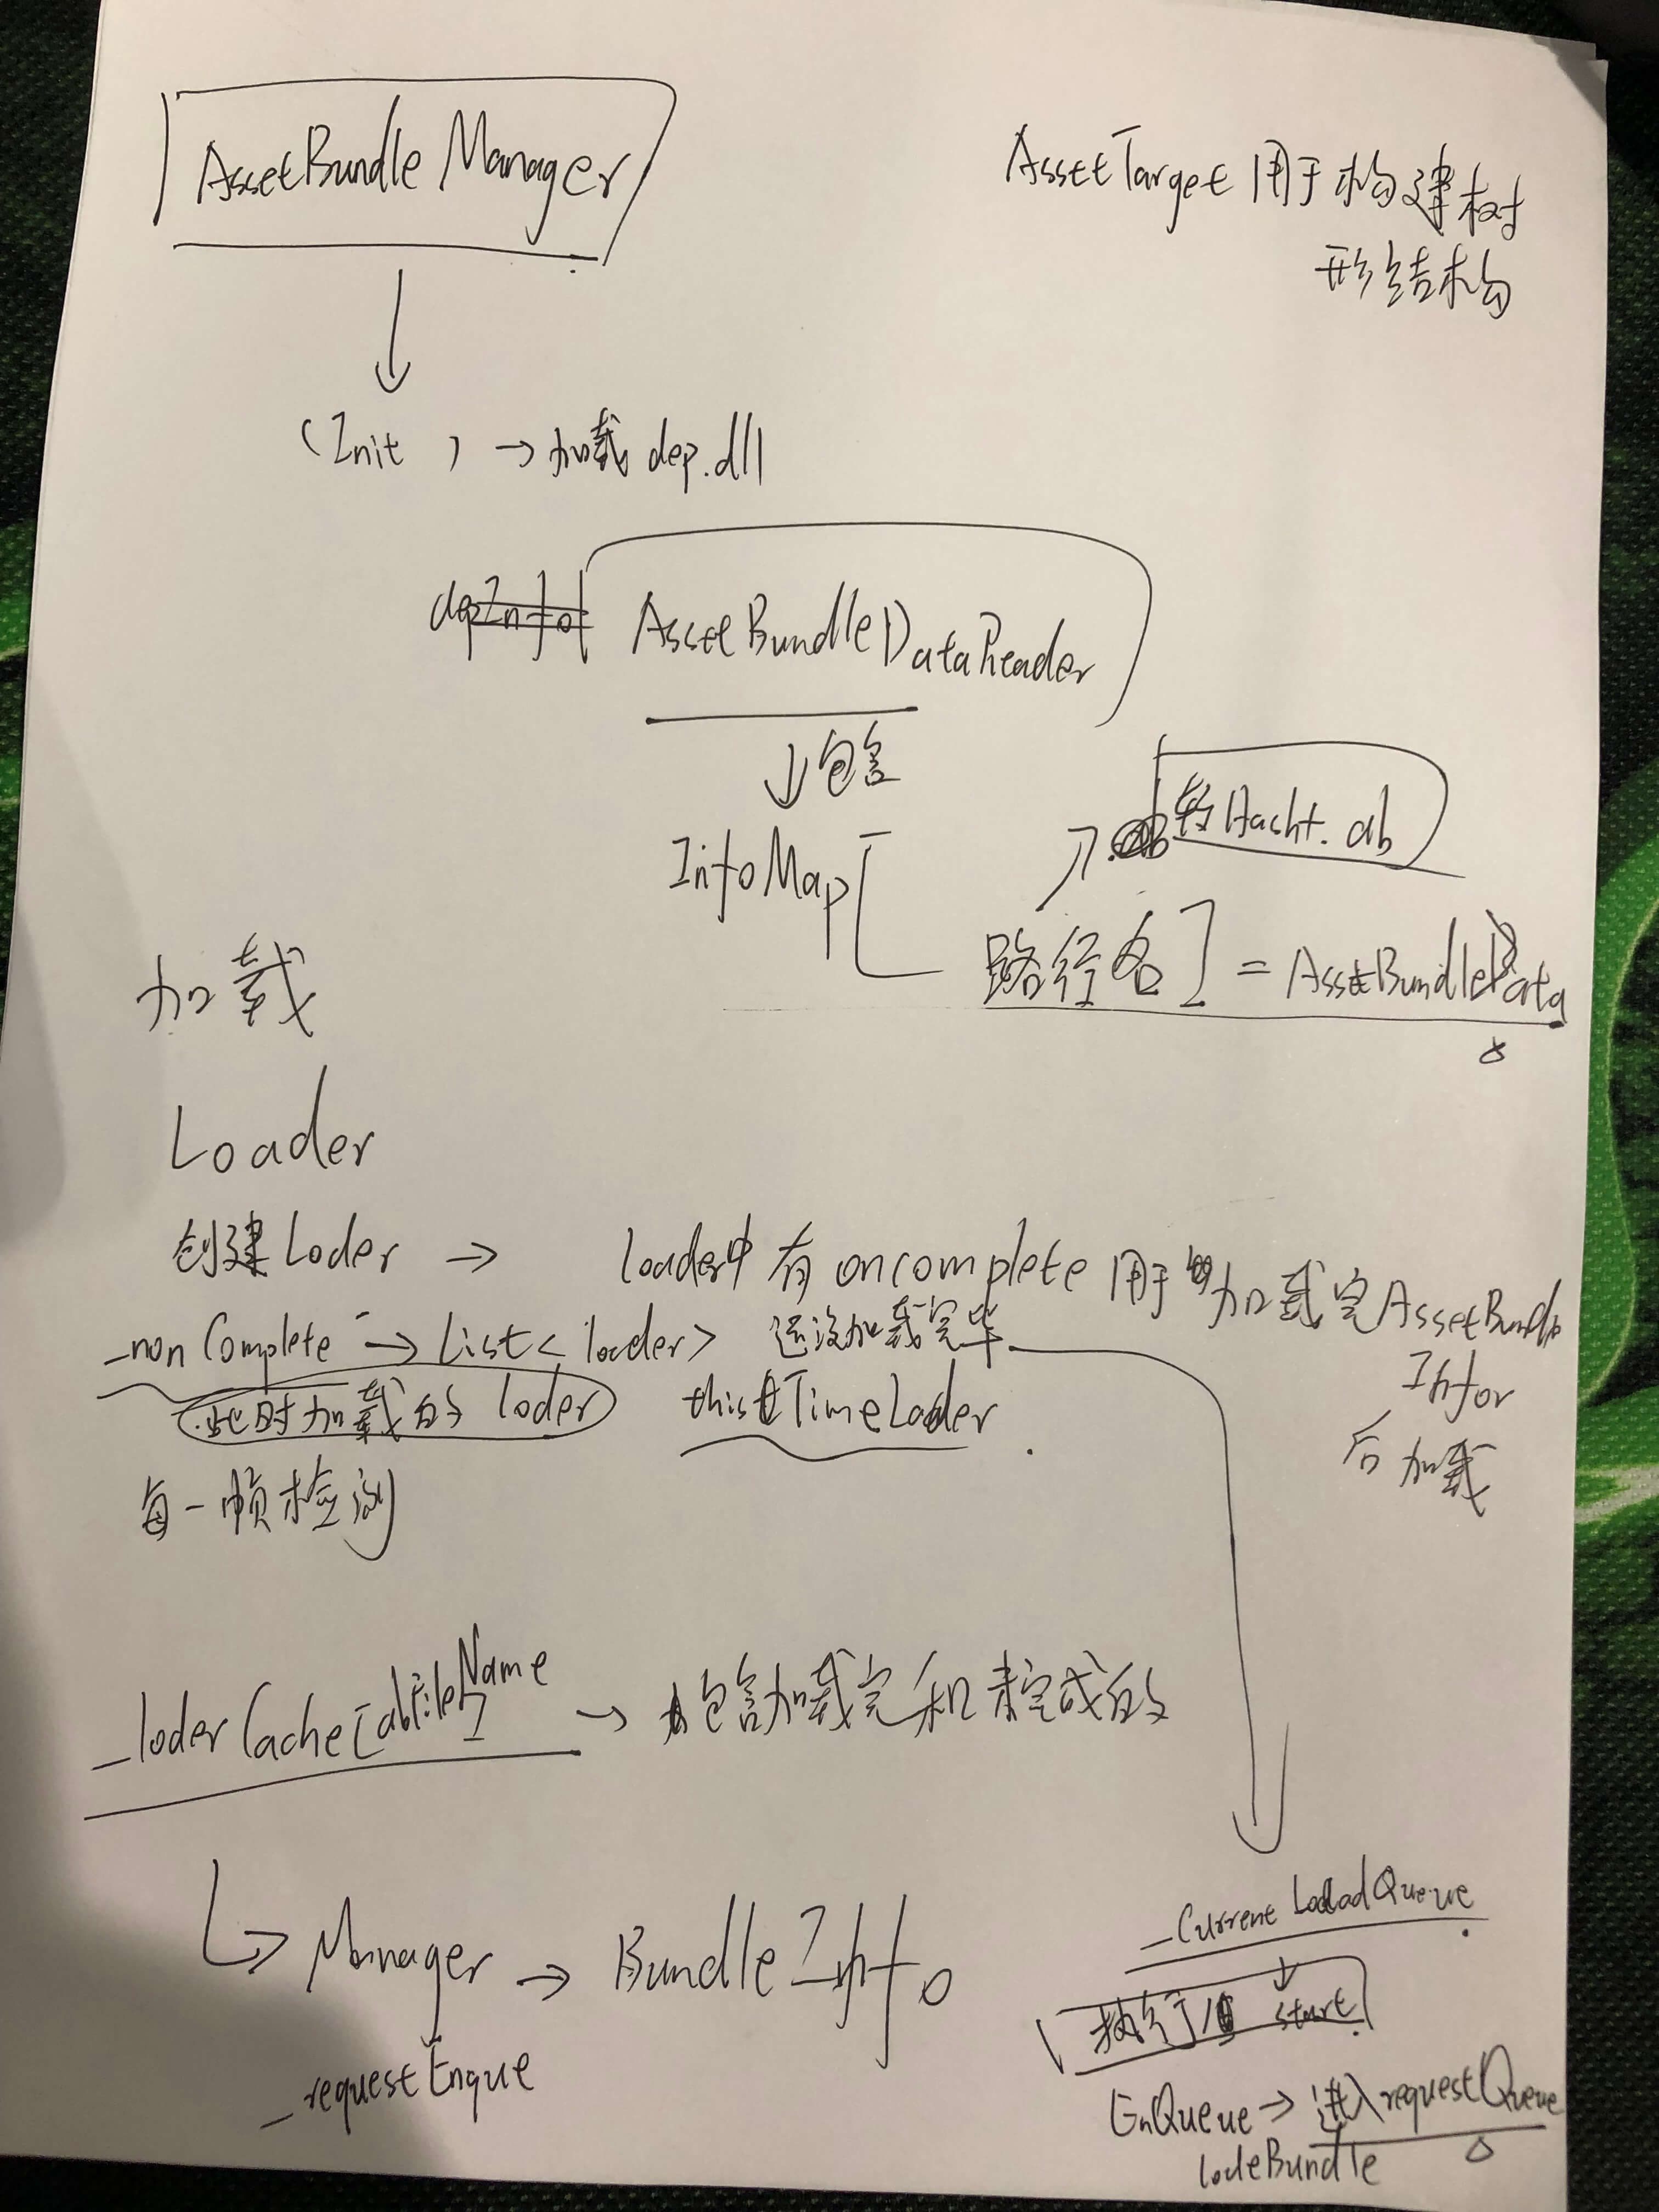 AssetBundle Manager
AssetTarget 用于构建树
形结构
(Init ) → 加载 dep.dll
AssetBundleDataReader
↓ 包含
转Hasht.ab
InfoMap[
路径名] = AssetBundleData
加载
Loader
创建 Loder →
loader中有 oncomplete 用于加载完AssetBundle
Infor
后加载
_nonComplete → List< loader> 还没加载完毕
此时加载的 loder
this TimeLoader
每一帧检测
_loderCache[abFileName]
→ 包含加载完和未完成的
→ Manager → BundleInfo
_requestEnque
_Current LoadQueue
↓
执行 start
EnQueue → 进入requestQueue
lodeBundle